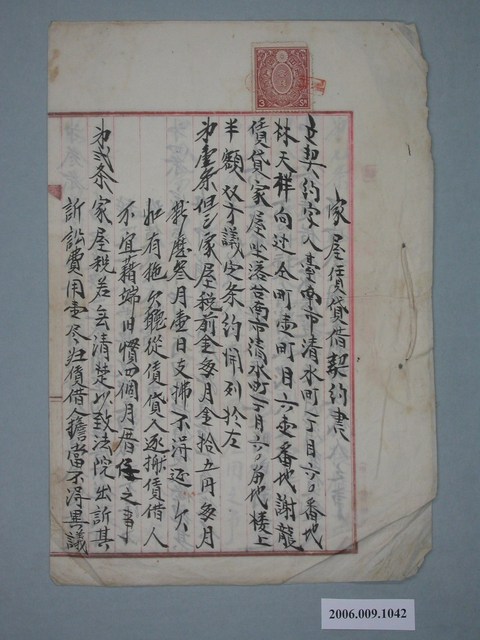 家屋賃貸借契約書
立契約字人臺南市清水町一丁目六〇番地
林天祥向过仝町壱町目六壱番地謝龍
賃貸家屋坐落台南市清水町一丁目六〇番地楼上
半額双方議定条約開列於左
第壹条但シ家屋税前金每月金拾五円每月
於曆叁月壹日支拂不得延欠
如有拖欠聽從賃貸人逐搬賃借人
不宜藉端旧慣四個月厝住之事
第弍条家屋税若無清楚以致法院出訴其
訴訟費用壹尽归賃借人擔當不得異議
3 Sn
2006.009.1042